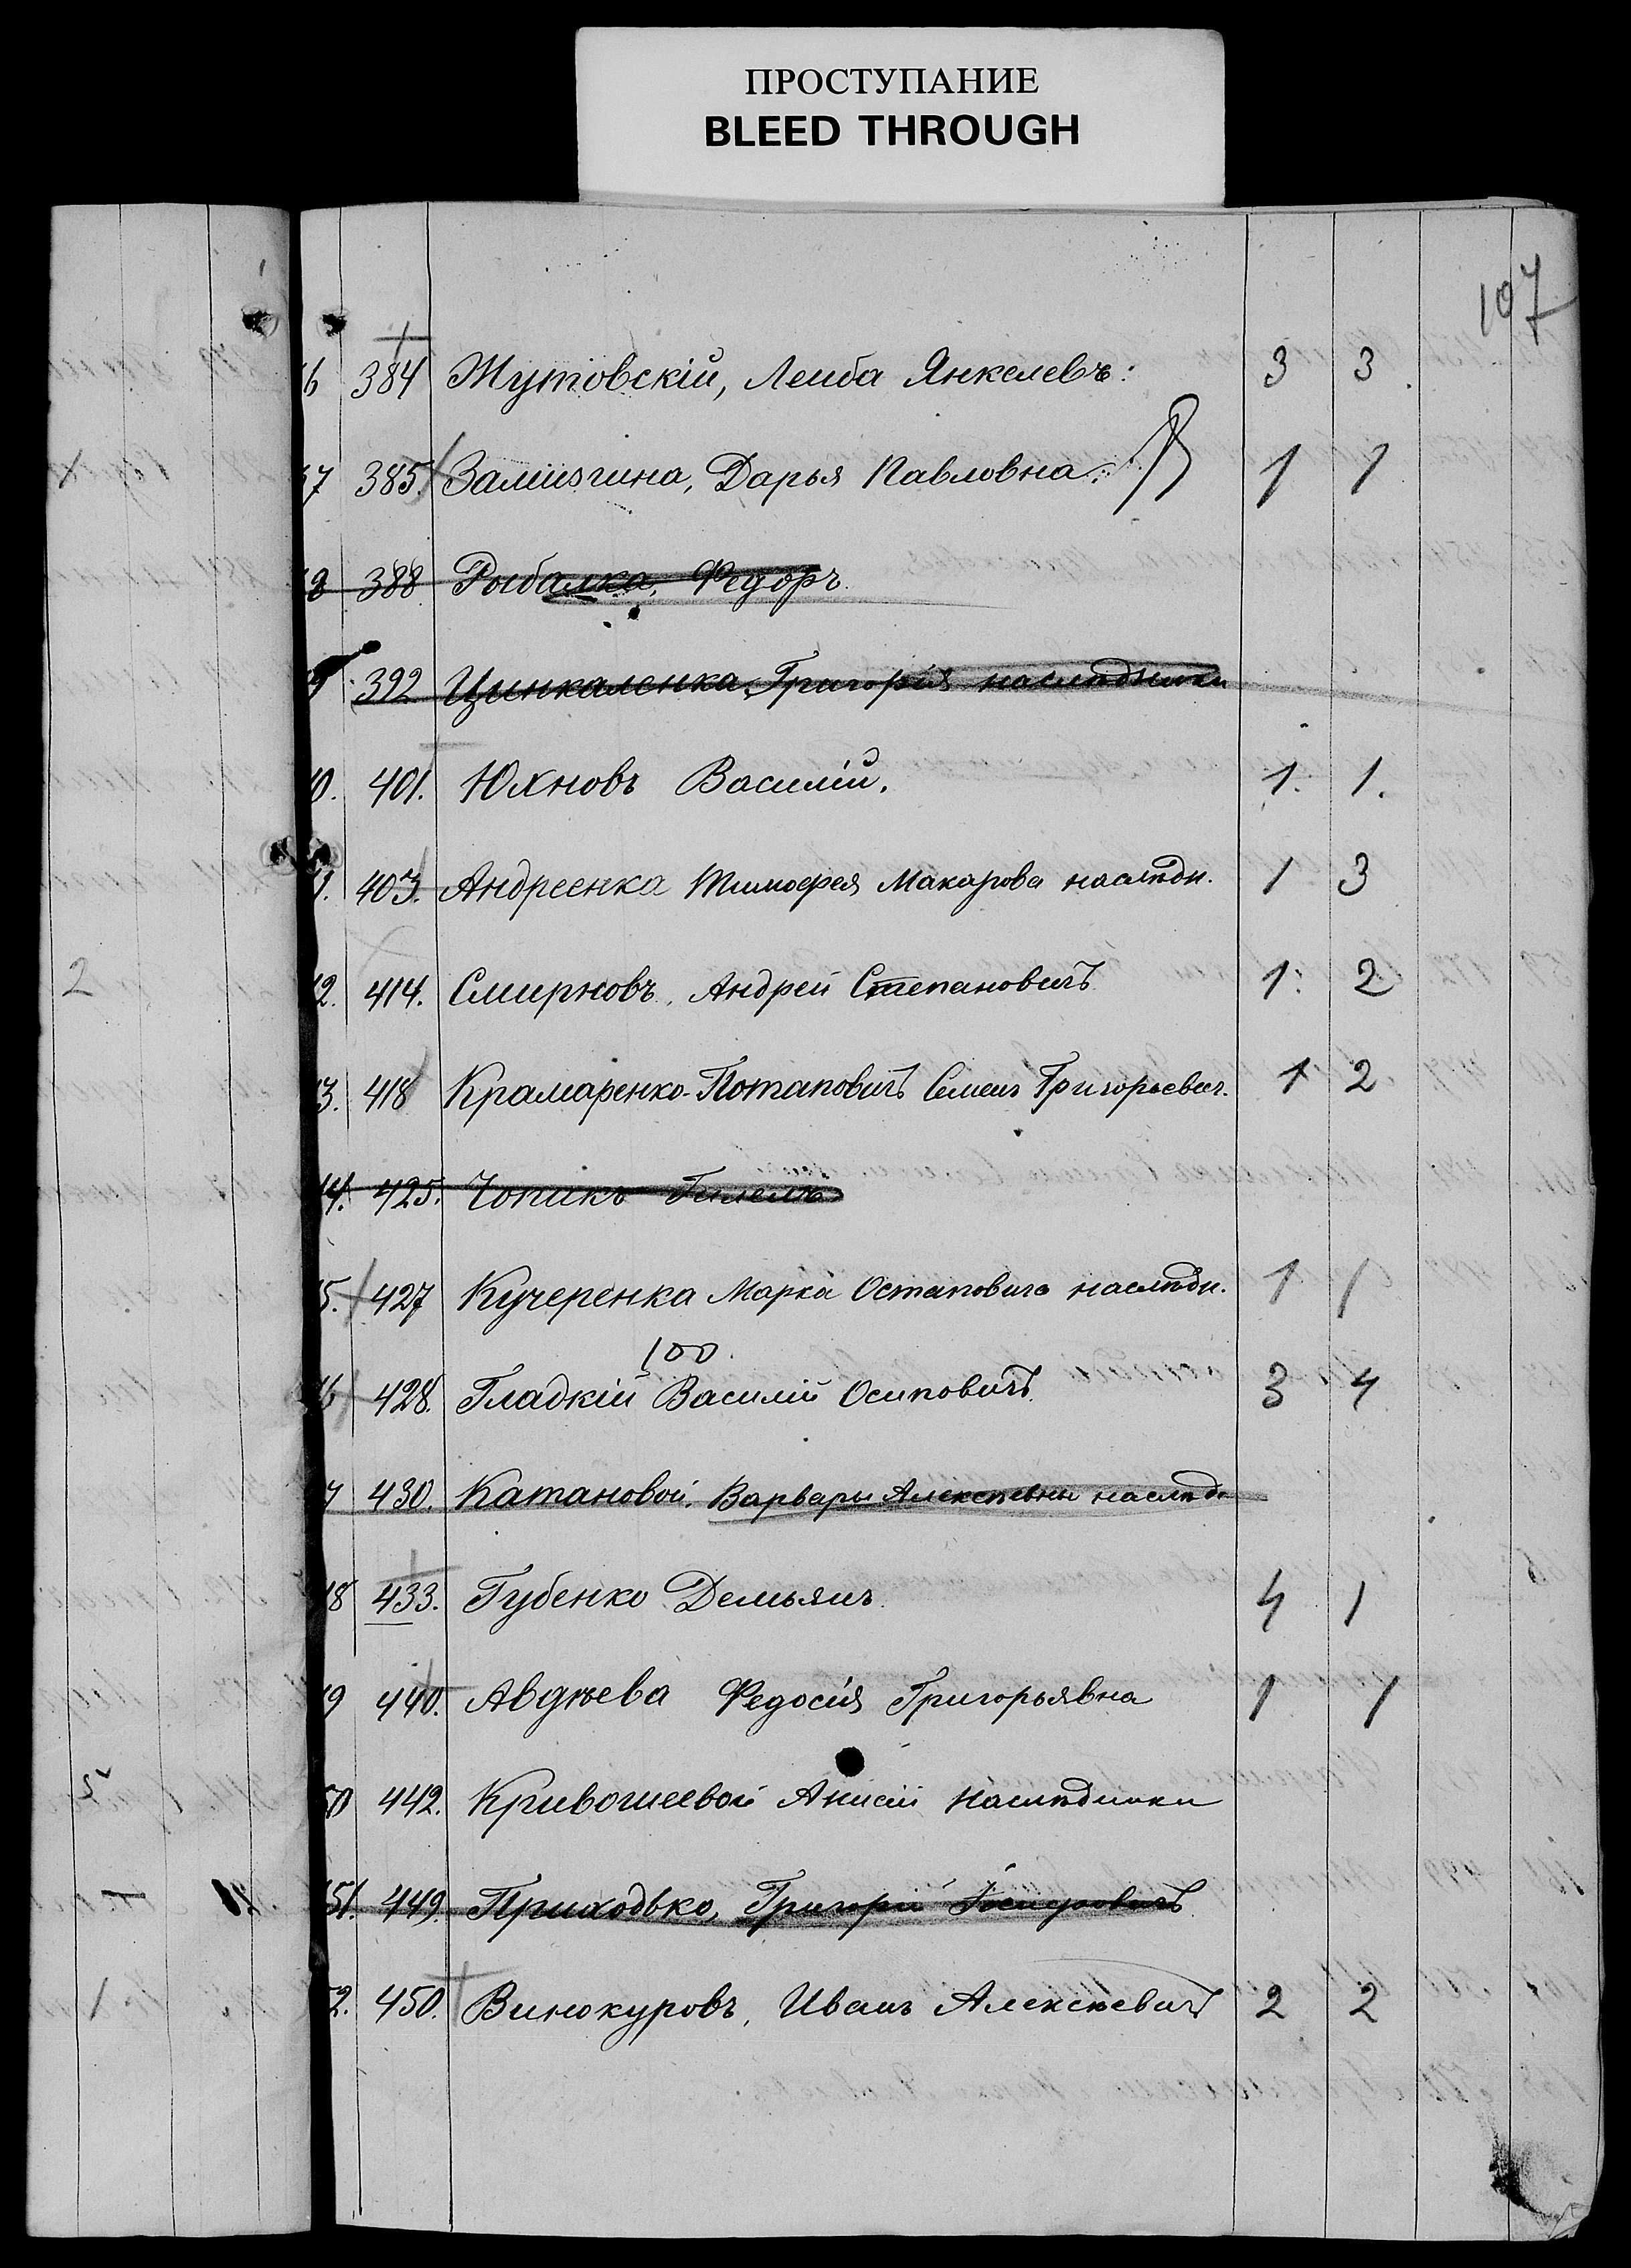 ПРОСТУПАНИЕ
BLEED THROUGH
107
6 384 Жутовскій, Лейба Янкелевъ: 3 3.
37 385. Дарья Павловна. 1 1
8 388 Рыбалка, Федоръ.
9 392 Цинкаленка, Григорія наслѣдники
0. 401. Юхновъ Василій. 1. 1.
1. 403. Андреенка Тимофея Макарова наслѣдн. 1 3
2. 414. Смирновъ, Андрей Степановичъ 1. 2
3. 418 Крамаренко-Потаповичъ Семенъ Григорьевич. 1 2
4. 425. Чопикъ
5. 427 Кучеренка Марка Остаповича наслѣдн. 1 1
100.
6 428. Гладкій Василій Осиповичъ. 3 4
7 430. Катановой, Варвары Алексѣевны наслѣд.
48 433. Губенко Демьянъ. 4 1
49 440. Авдѣева Федосія Григорьявна 1 1
50 442. Кривошеевой Анисіи наслѣдники
51. 449. Приходько, Григорій
52. 450. Винокуровъ, Иванъ Алексѣевичъ 2 2
2
5
1